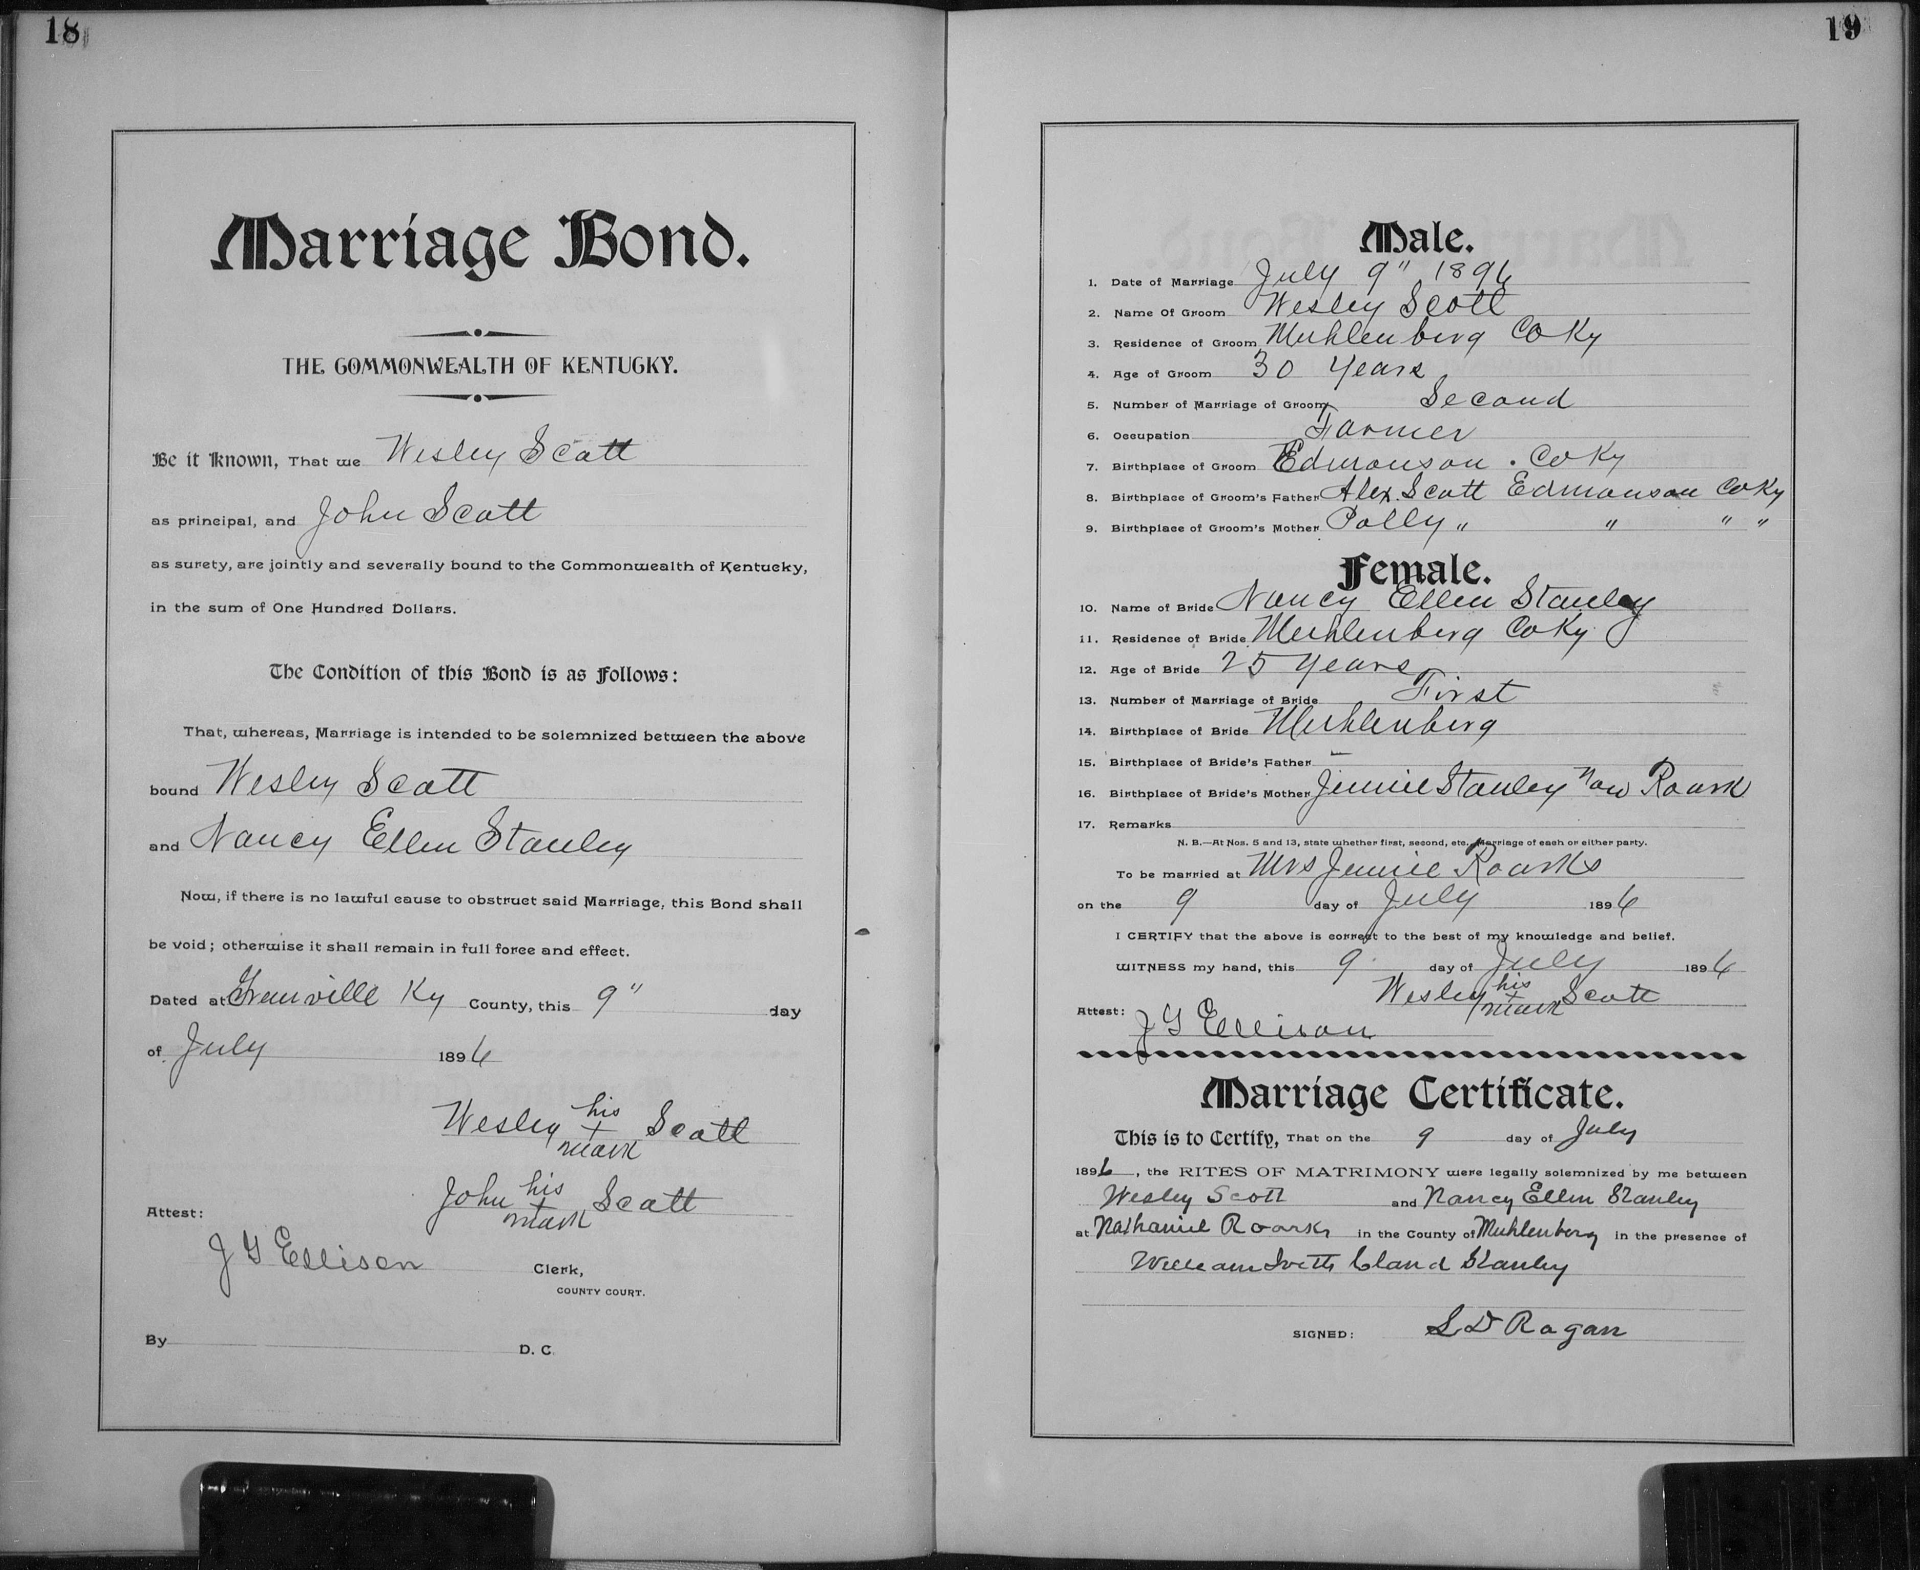 18
Marriage Bond.
THE COMMONWEALTH OF KENTUCKY.
Be it known, That we Wesley Scott
as principal, and John Scott
as surety, are jointly and severally bound to the Commonwealth of Kentucky,
in the sum of One Hundred Dollars.
The Condition of this Bond is as Follows:
That, whereas, Marriage is intended to be solemnized between the above
bound Wesley Scott
and Nancy Ellen Stanley
Now, if there is no lawful cause to obstruct said Marriage, this Bond shall
be void; otherwise it shall remain in full force and effect.
Dated at Greenville Ky County, this 9" day
of July 1896
Wesley his + mark Scott
John his + mark Scott
Attest:
J G Ellison Clerk,
COUNTY COURT.
By D. C.
19
Male.
1. Date of Marriage July 9" 1896
2. Name Of Groom Wesley Scott
3. Residence of Groom Muhlenberg Co Ky
4. Age of Groom 30 Years
5. Number of Marriage of Groom Second
6. Occupation Farmer
7. Birthplace of Groom Edmonson . Co Ky
8. Birthplace of Groom's Father Alex. Scott Edmonson Co Ky
9. Birthplace of Groom's Mother Polly " " " "
Female.
10. Name of Bride Nancy Ellen Stanley
11. Residence of Bride Muhlenberg Co Ky
12. Age of Bride 25 Years
13. Number of Marriage of Bride First
14. Birthplace of Bride Muhlenberg
15. Birthplace of Bride's Father —
16. Birthplace of Bride's Mother Jennie Stanley now Roark
17. Remarks
N. B.—At Nos. 5 and 13, state whether first, second, etc. Marriage of each or either party.
To be married at Mrs Jennie Roarks
on the 9 day of July 1896
I CERTIFY that the above is correct to the best of my knowledge and belief.
WITNESS my hand, this 9 day of July 1896
Wesley his + mark Scott
Attest:
J G Ellison
Marriage Certificate.
This is to Certify, That on the 9 day of July
1896, the RITES OF MATRIMONY were legally solemnized by me between
Wesley Scott and Nancy Ellen Stanley
at Nathaniel Roarks in the County of Muhlenberg in the presence of
William Stanley
SIGNED: S D Ragan